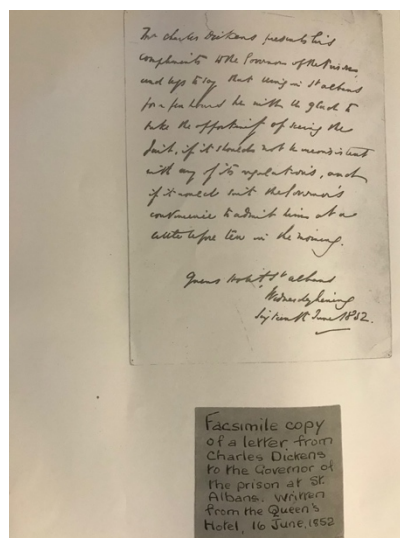 Mr Charles Dickens presents his
compliments to the Governor of the Prison
and begs to say that being in St Albans
for a few hours he will be glad to
take the opportunity of seeing the
Jail, if it should not be inconsistent
with any of its regulations, and
if it would suit the Governor's
convenience to admit him at a
little before ten in the morning.
Queens Hotel St Albans
Wednesday Evening
Sixteenth June 1852.
Facsimile copy
of a letter from
Charles Dickens
to the Governor of
the prison at St.
Albans. Written
from the Queen's
Hotel, 16 June, 1852